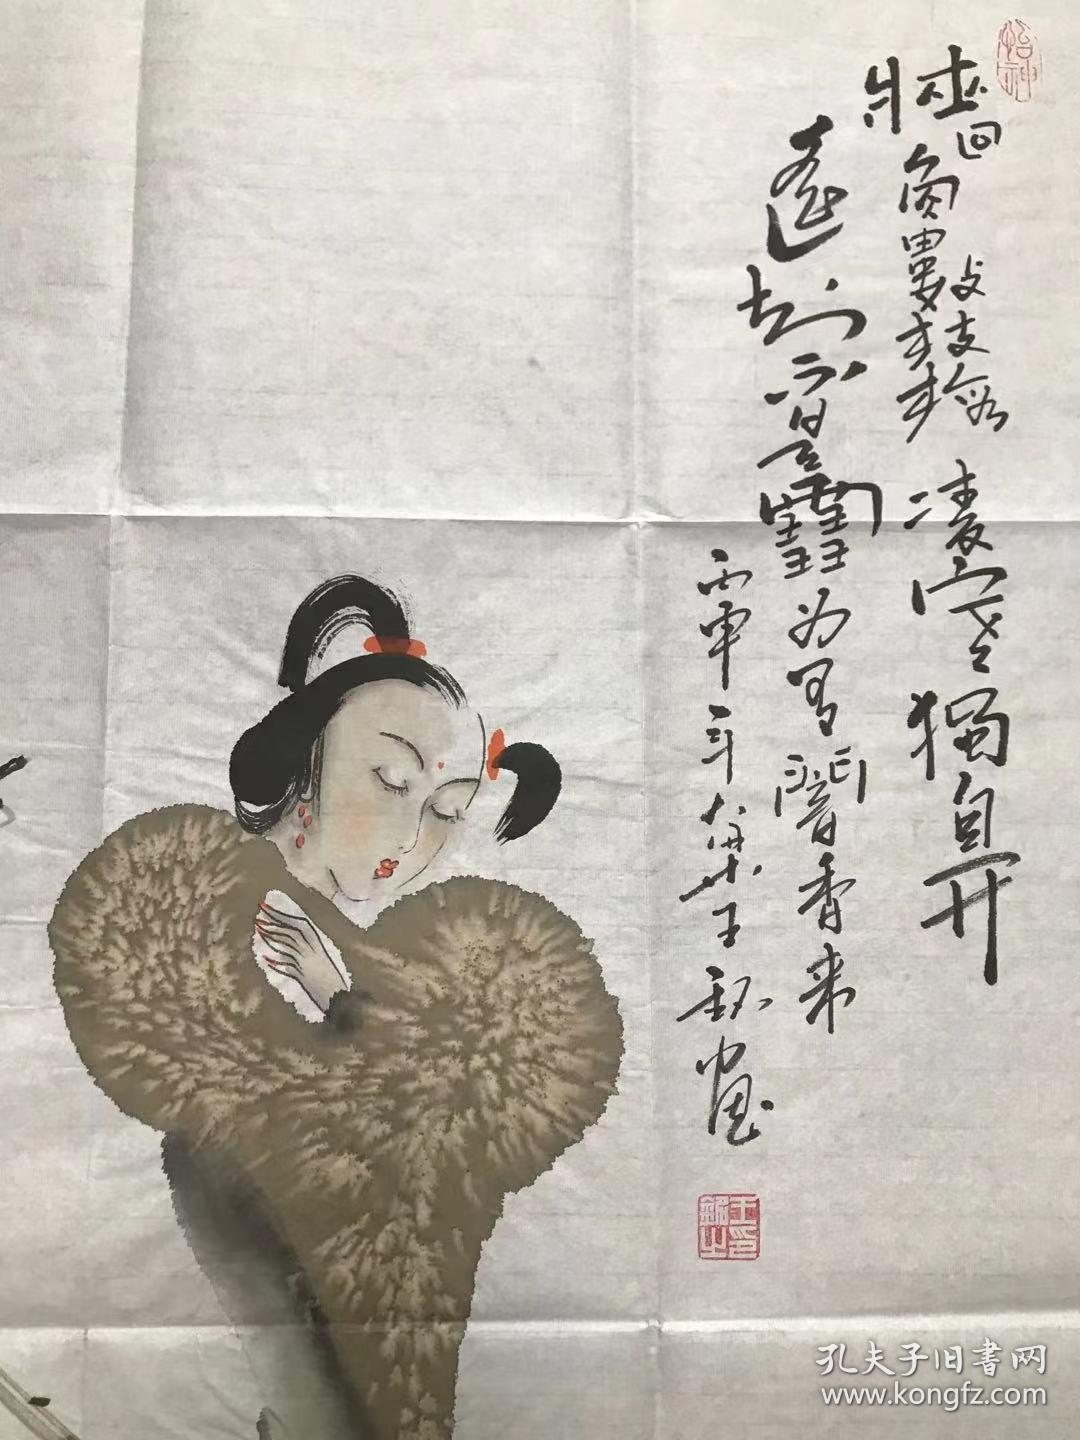 墙角数枝梅凌寒独自开
遥知不是雪为有暗香来
丙申年
王
画
孔夫子旧书网
www.kongfz.com